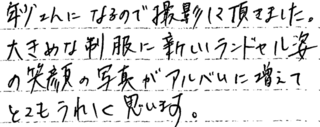 年少さんになるので撮影に頂きました。
大きめな制服に新しいランドセル姿
の笑顔の写真がアルバムに増えて
とてもうれしく思います。